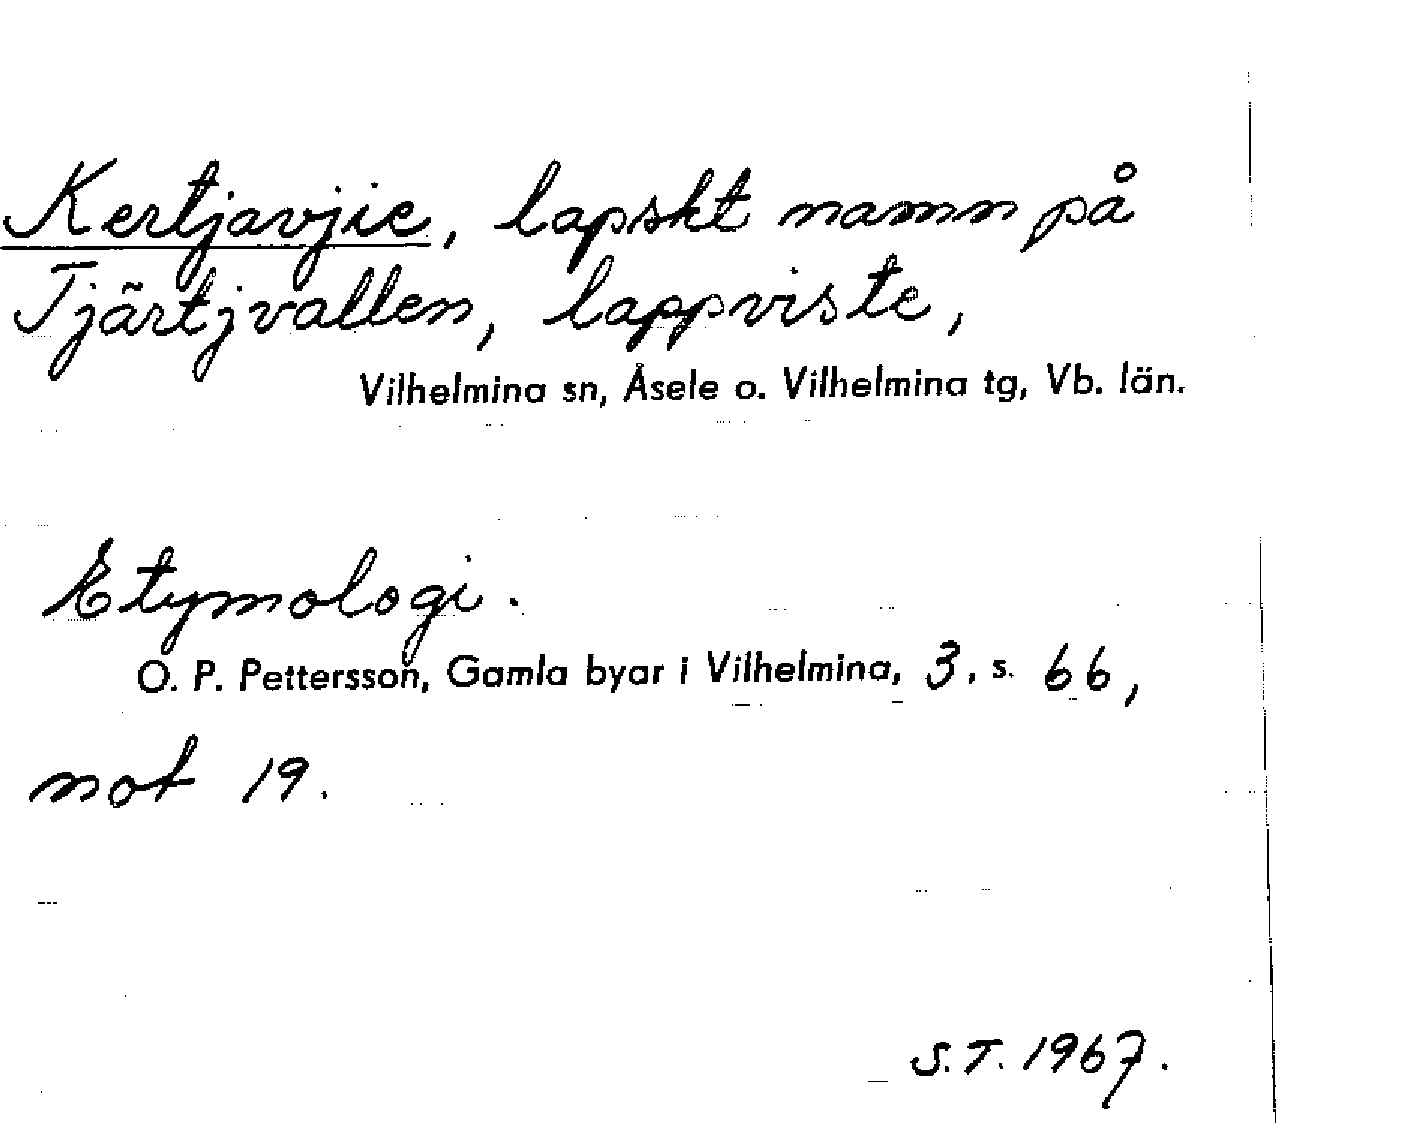 Kertjavjie, lapskt namn på
Tjärtjvallen, lappviste,
Vilhelmina sn, Åsele o. Vilhelmina tg, Vb. län.
Etymologi.
O. P. Pettersson, Gamla byar i Vilhelmina, 3, s. 66,
not 19.
S.T. 1967.